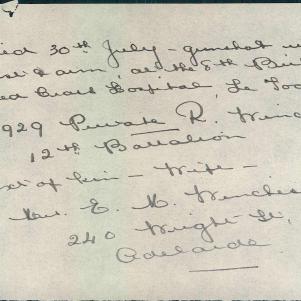 ied 30th July - gunshot w
st & arm, at the 8th Bri
ed Cross Hospital, Le To
929 Private R. Winc
12th Battalion
xt of kin - Wife -
Mrs. E. M. Winches
240 Wright St,
Adelaide.